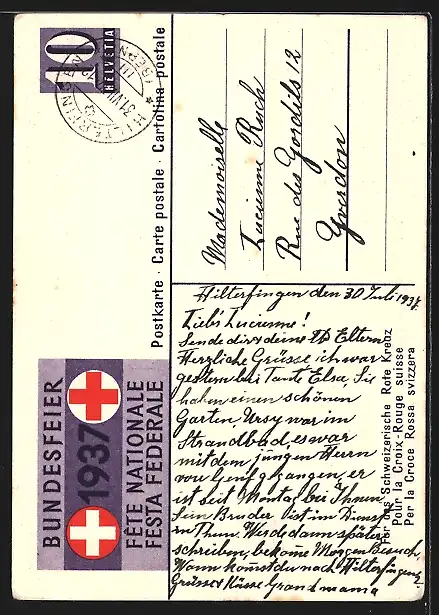 10
HELVETIA
HILTERFINGEN
(BERN)
31.VII
Postkarte · Carte postale · Cartolina postale
BUNDESFEIER
1937
FÊTE NATIONALE
FESTA FEDERALE
Mademoiselle
Lucienne Ruch
Rue des Jordils 12
Yverdon
Hilterfingen den 30 Juli 1937.
Lieb's Lucienne!
Sende dir & deine Eltern
Herzliche Grüsse ich war
gestern bei Tante Elsa, Sie
haben einen schönen
Garten, Ursy war im
Strandbad, es war
mit dem jungen Herrn
von Genf gegangen, er
ist seit Montag bei Ihnen
Sein Bruder ist im Dienst
in Thun. Werd dann später
schreiben, bekome Morgen Besuch,
Wann kommst du nach Hilterfingen
Grüsse & Küsse Grandmama
Für das Schweizerische Rote Kreuz
Pour la Croix-Rouge suisse
Per la Croce Rossa svizzera